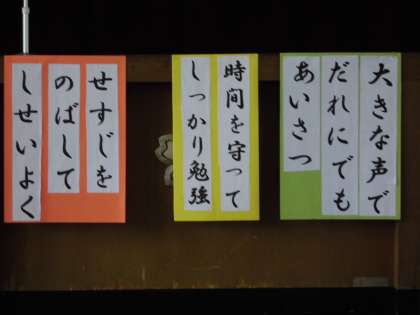 大きな声で
だれにでも
あいさつ
時間を守って
しっかり勉強
せすじを
のばして
しせいよく